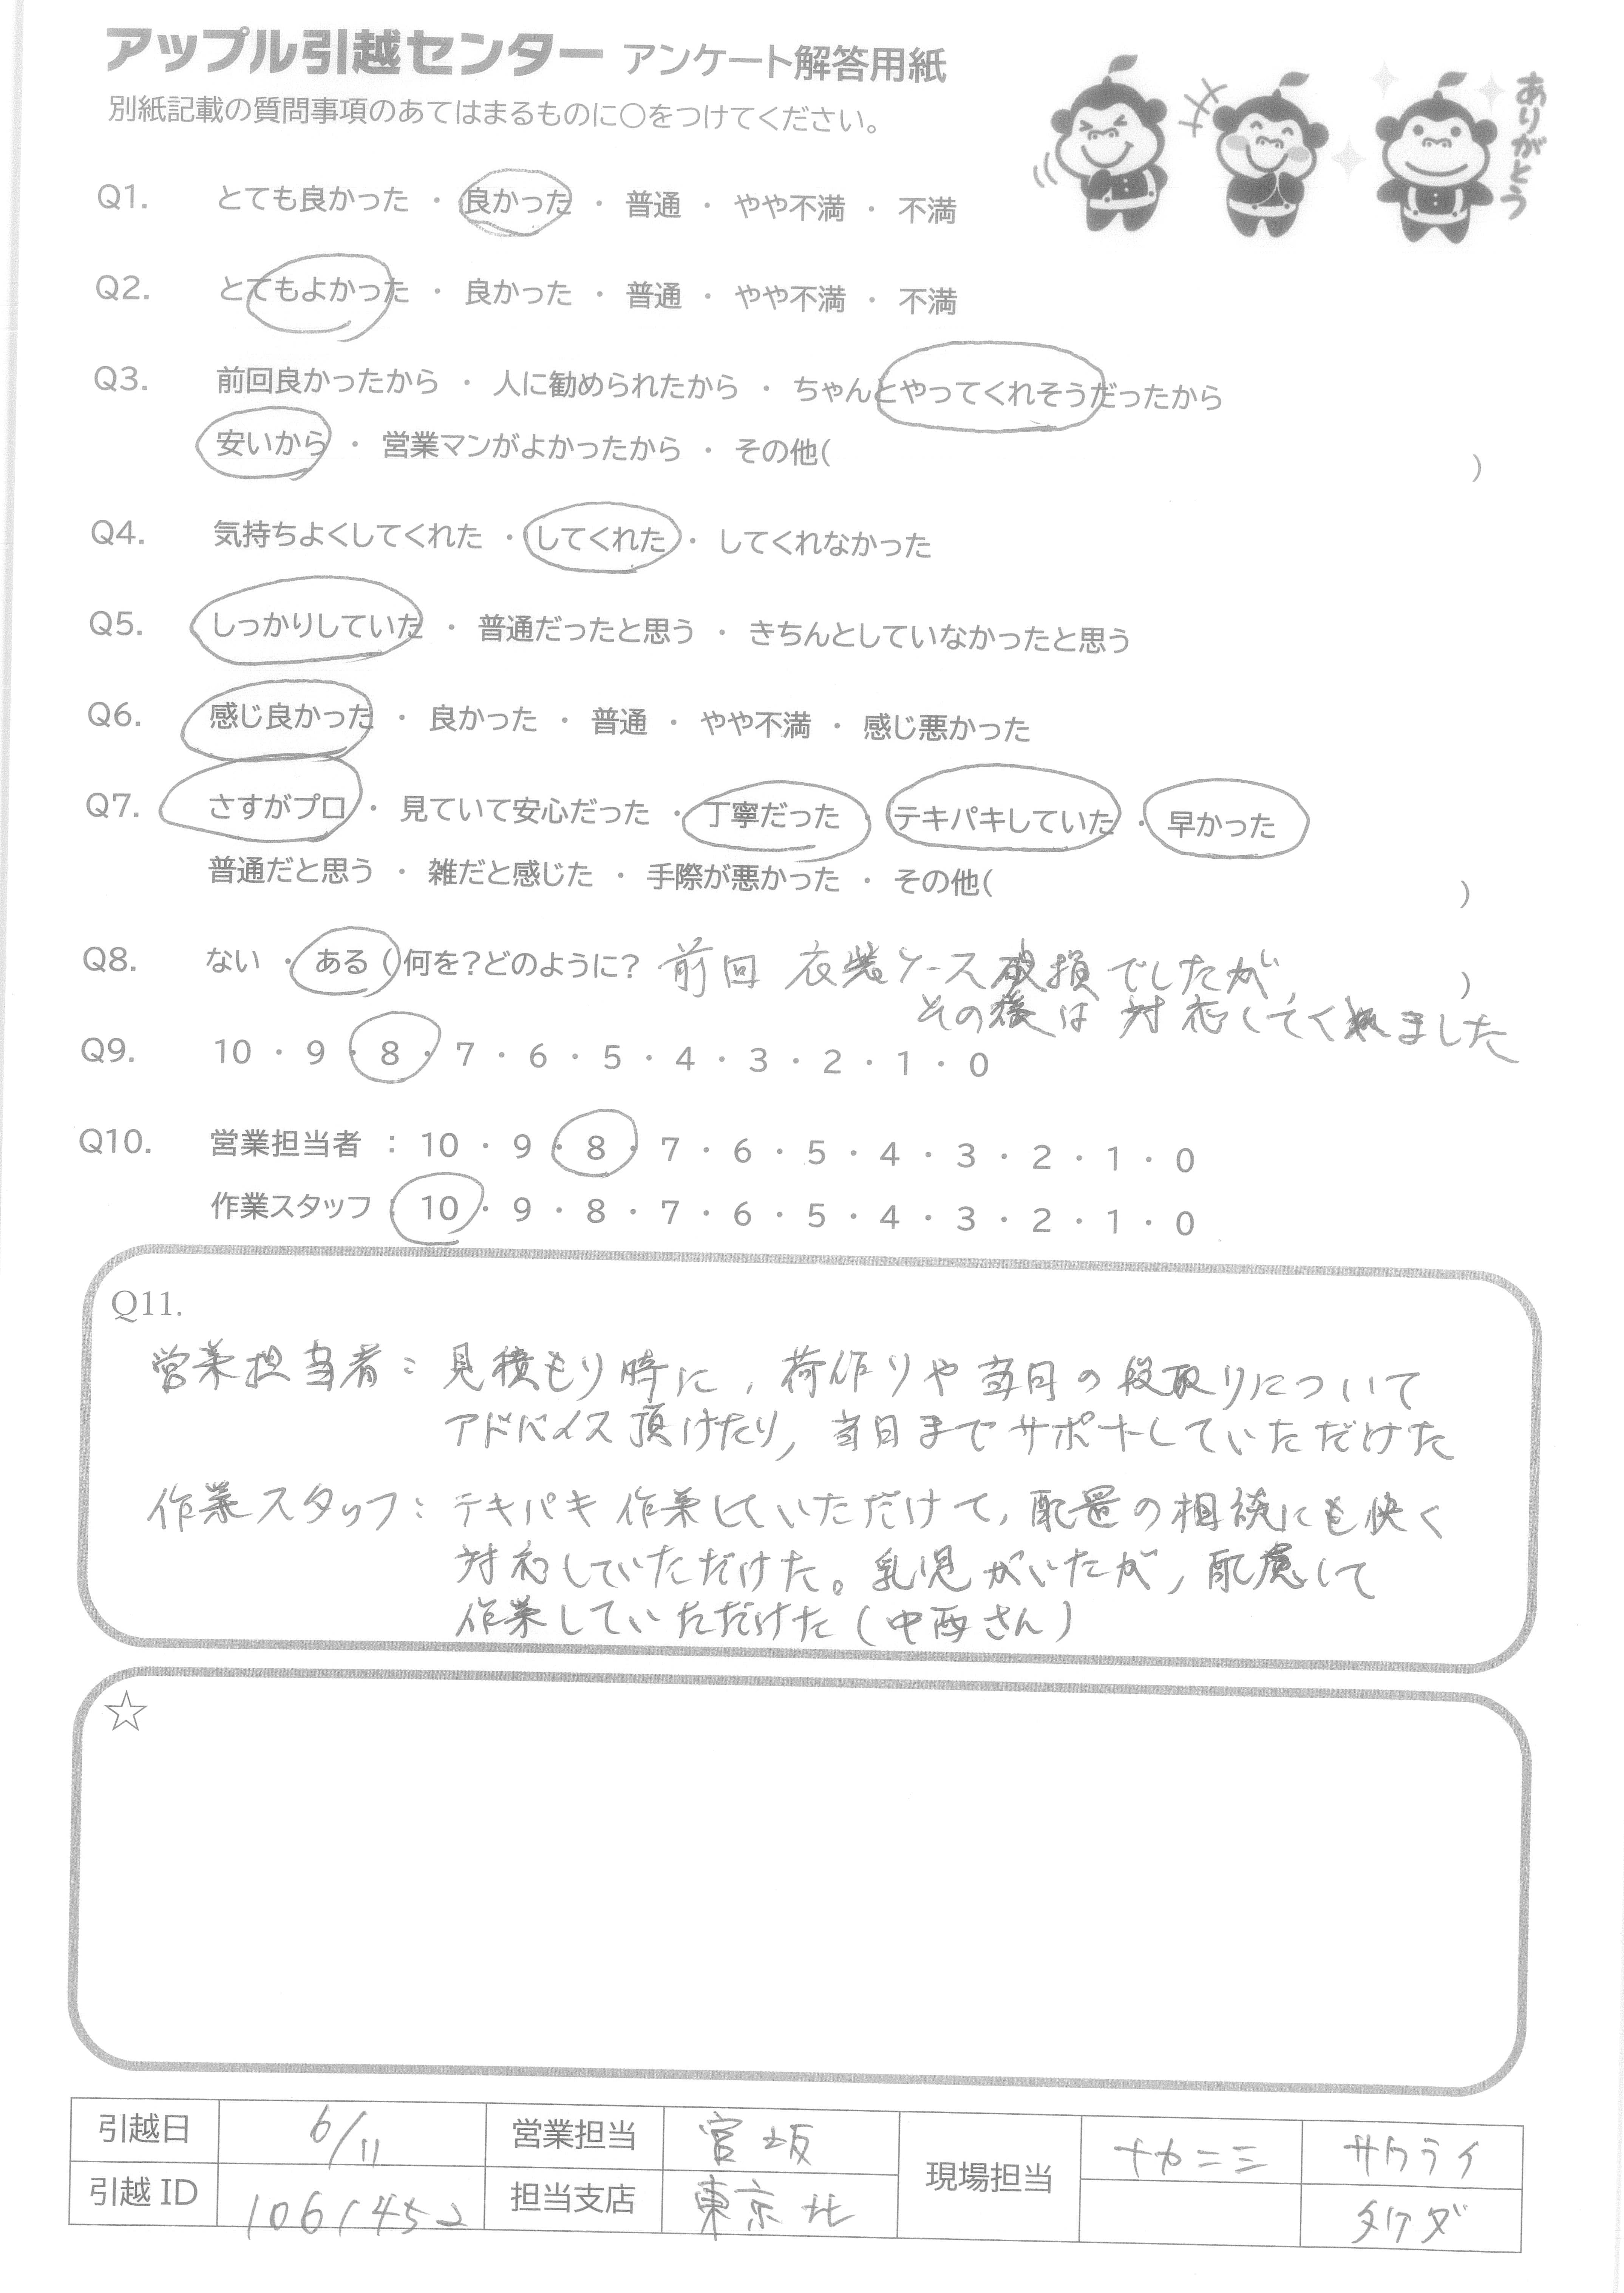 アップル引越センター アンケート解答用紙
別紙記載の質問事項のあてはまるものに○をつけてください。
ありがとう
Q1. とても良かった ・ 良かった ・ 普通 ・ やや不満 ・ 不満
Q2. とてもよかった ・ 良かった ・ 普通 ・ やや不満 ・ 不満
Q3. 前回良かったから ・ 人に勧められたから ・ ちゃんとやってくれそうだったから
安いから ・ 営業マンがよかったから ・ その他( )
Q4. 気持ちよくしてくれた ・ してくれた ・ してくれなかった
Q5. しっかりしていた ・ 普通だったと思う ・ きちんとしていなかったと思う
Q6. 感じ良かった ・ 良かった ・ 普通 ・ やや不満 ・ 感じ悪かった
Q7. さすがプロ ・ 見ていて安心だった ・ 丁寧だった ・ テキパキしていた ・ 早かった
普通だと思う ・ 雑だと感じた ・ 手際が悪かった ・ その他( )
Q8. ない ・ ある ( 何を?どのように? 前回 衣装ケース破損でしたが、 )
その後は 対応してくれました
Q9. 10 ・ 9 ・ 8 ・ 7 ・ 6 ・ 5 ・ 4 ・ 3 ・ 2 ・ 1 ・ 0
Q10. 営業担当者 : 10 ・ 9 ・ 8 ・ 7 ・ 6 ・ 5 ・ 4 ・ 3 ・ 2 ・ 1 ・ 0
作業スタッフ : 10 ・ 9 ・ 8 ・ 7 ・ 6 ・ 5 ・ 4 ・ 3 ・ 2 ・ 1 ・ 0
Q11.
営業担当者: 見積もり時に、荷作りや当日の段取りについて
アドバイス頂けたり、当日までサポートしていただけた
作業スタッフ: テキパキ作業していただけて、配置の相談にも快く
対応していただけた。乳児がいたが、配慮して
作業していただけた(中西さん)
☆
引越日 6/11 営業担当 宮坂 現場担当 ナカニシ サクライ
引越 ID 1061452 担当支店 東京北 タケダ